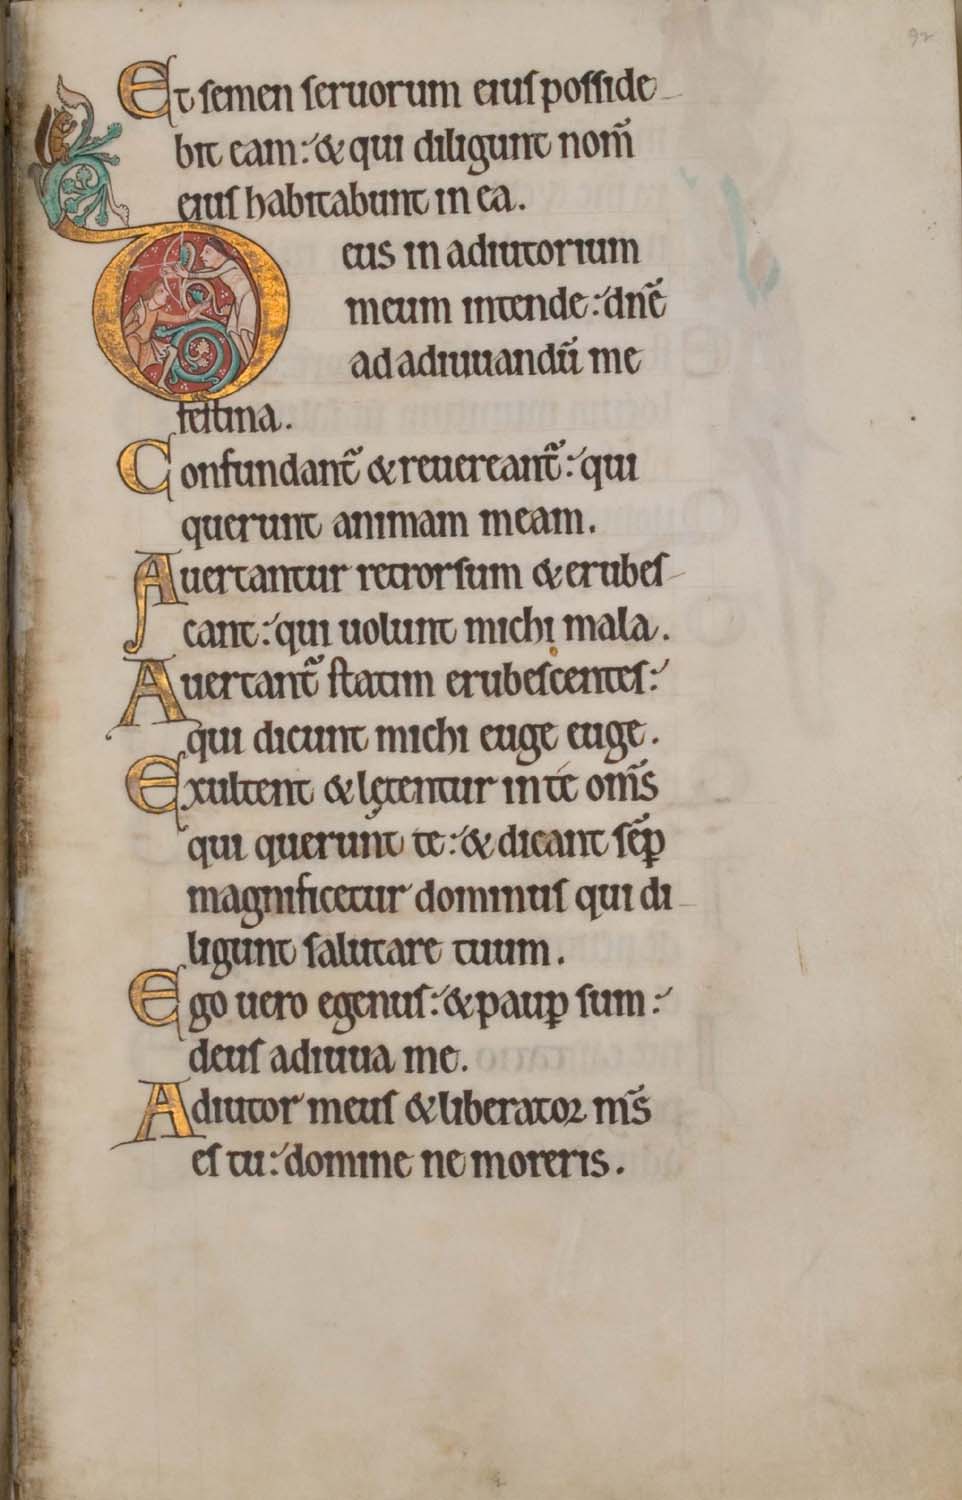 92
Et semen seruorum eius posside
bit eam: & qui diligunt nom̄
eius habitabunt in ea.
Deus in adiutorium
meum intende: dn̄e
ad adiuuandū me
festina.
Confundant̄ & reuereant̄: qui
querunt animam meam.
Auertantur retrorsum & erubes
cant: qui uolunt michi mala.
Auertant̄ statim erubescentes:
qui dicunt michi euge euge.
Exultent & lętentur in te om̄s
qui querunt te: & dicant sēꝑ
magnificetur dominus qui di
ligunt salutare tuum.
Ego uero egenus: & pauꝑ sum:
deus adiuua me.
Adiutor meus & liberator m̄s
es tu: domine ne moreris.